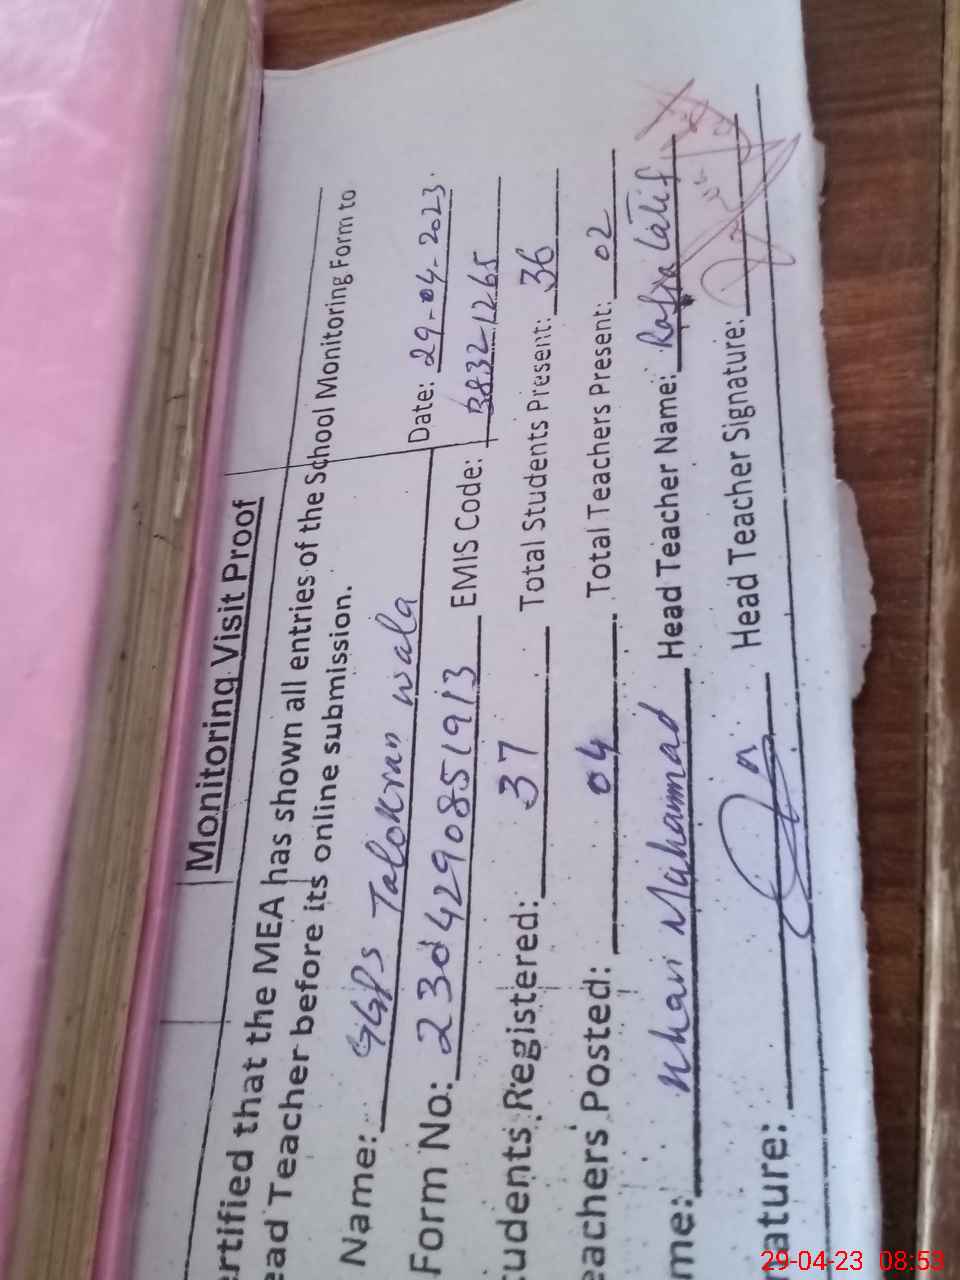 Monitoring Visit Proof
ertified that the MEA has shown all entries of the School Monitoring Form to
ead Teacher before its online submission.
Name: GGPS Talokran wala Date: 29-04-2023.
Form No: 23d4290851913 EMIS Code: 38321265
tudents Registered: 37 Total Students Present: 36
eachers Posted: 04 Total Teachers Present: 02
me: Khan Muhammad Head Teacher Name: Rafia Latif
nature: Head Teacher Signature:
29-04-23 08:53